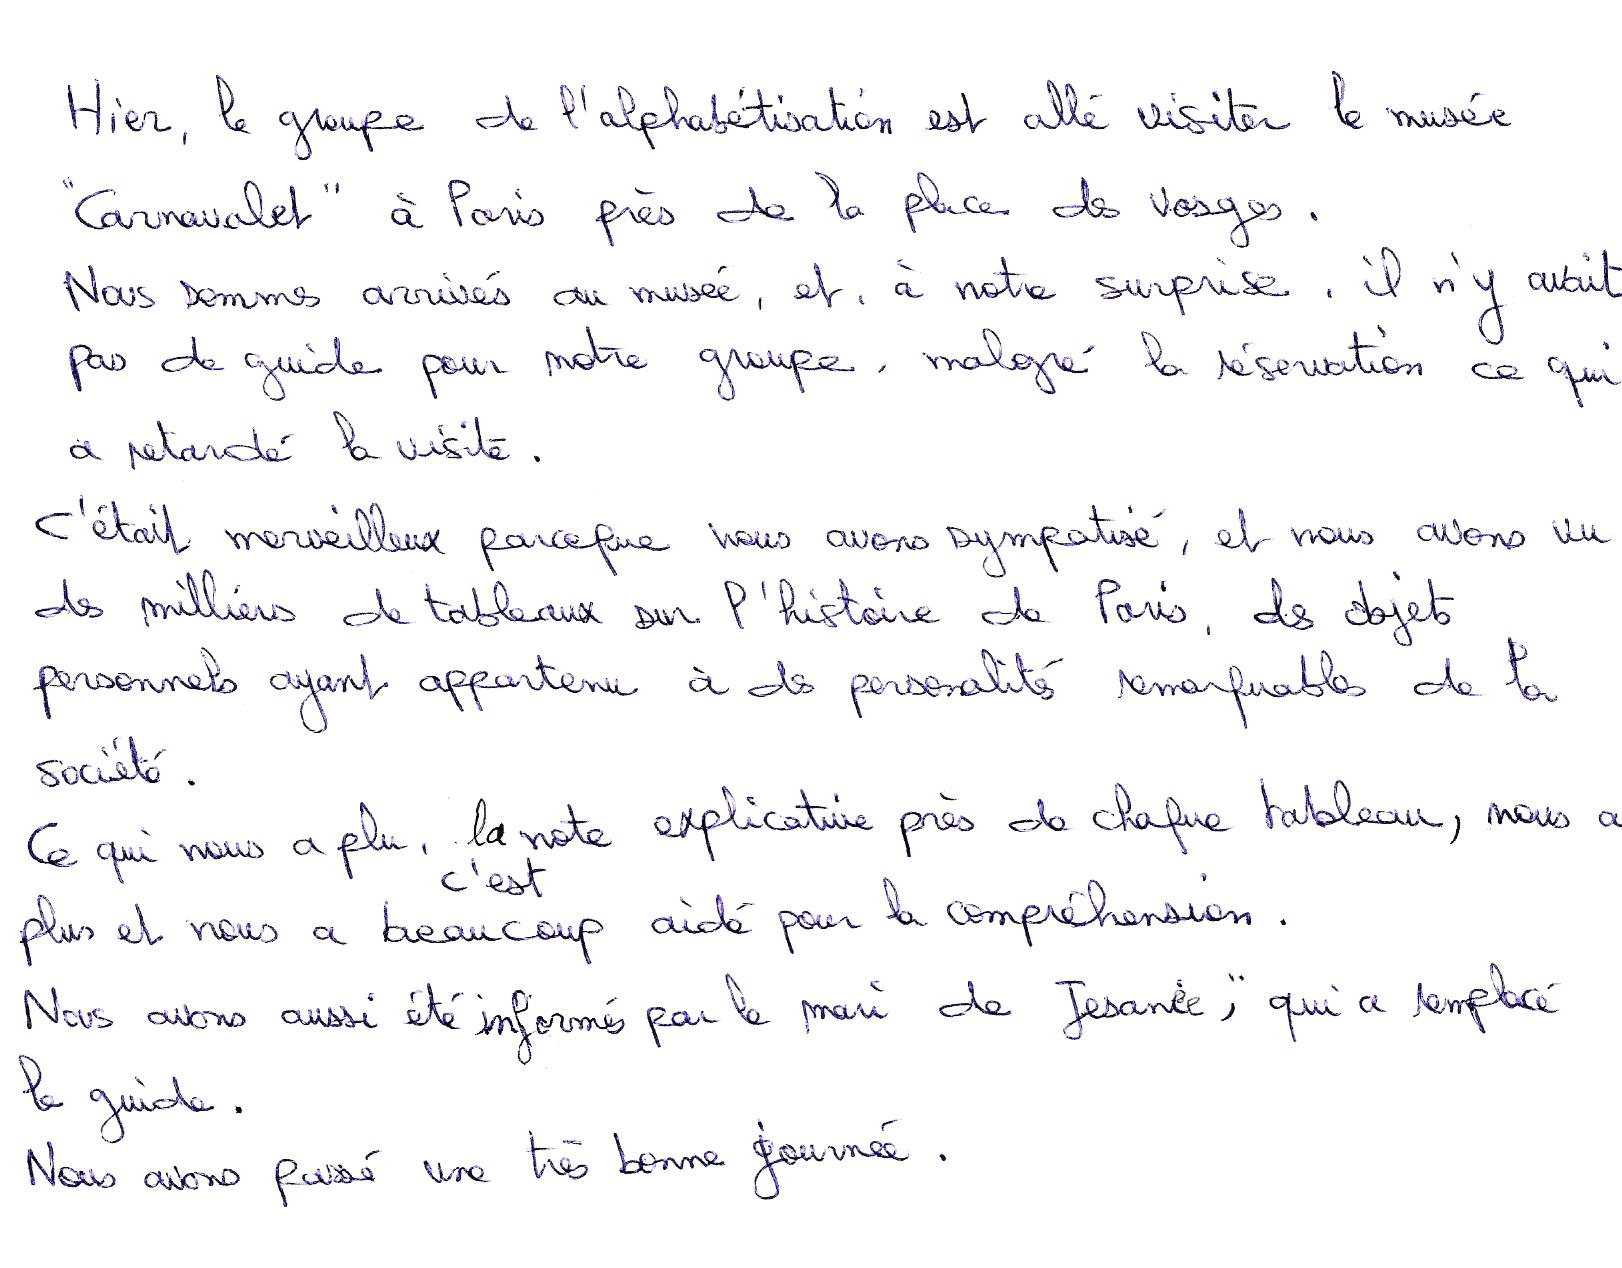 Hier, le groupe de l'alphabétisation est allé visiter le musée
"Carnavalet" à Paris près de la place des Vosges.
Nous sommes arrivés au musée, et, à notre surprise, il n'y avait
pas de guide pour notre groupe, malgré la réservation ce qui
a retardé la visite.
C'était merveilleux parceque nous avons sympatisé, et nous avons vu
des milliers de tableaux sur l'histoire de Paris, des objets
personnels ayant appartenu à des personalités remarquables de la
société.
Ce qui nous a plu, la note explicative près de chaque tableau, nous a
c'est
plus et nous a beaucoup aidé pour la compréhension.
Nous avons aussi été informés par le mari de qui a remplacé
le guide.
Nous avons passé une très bonne journée.